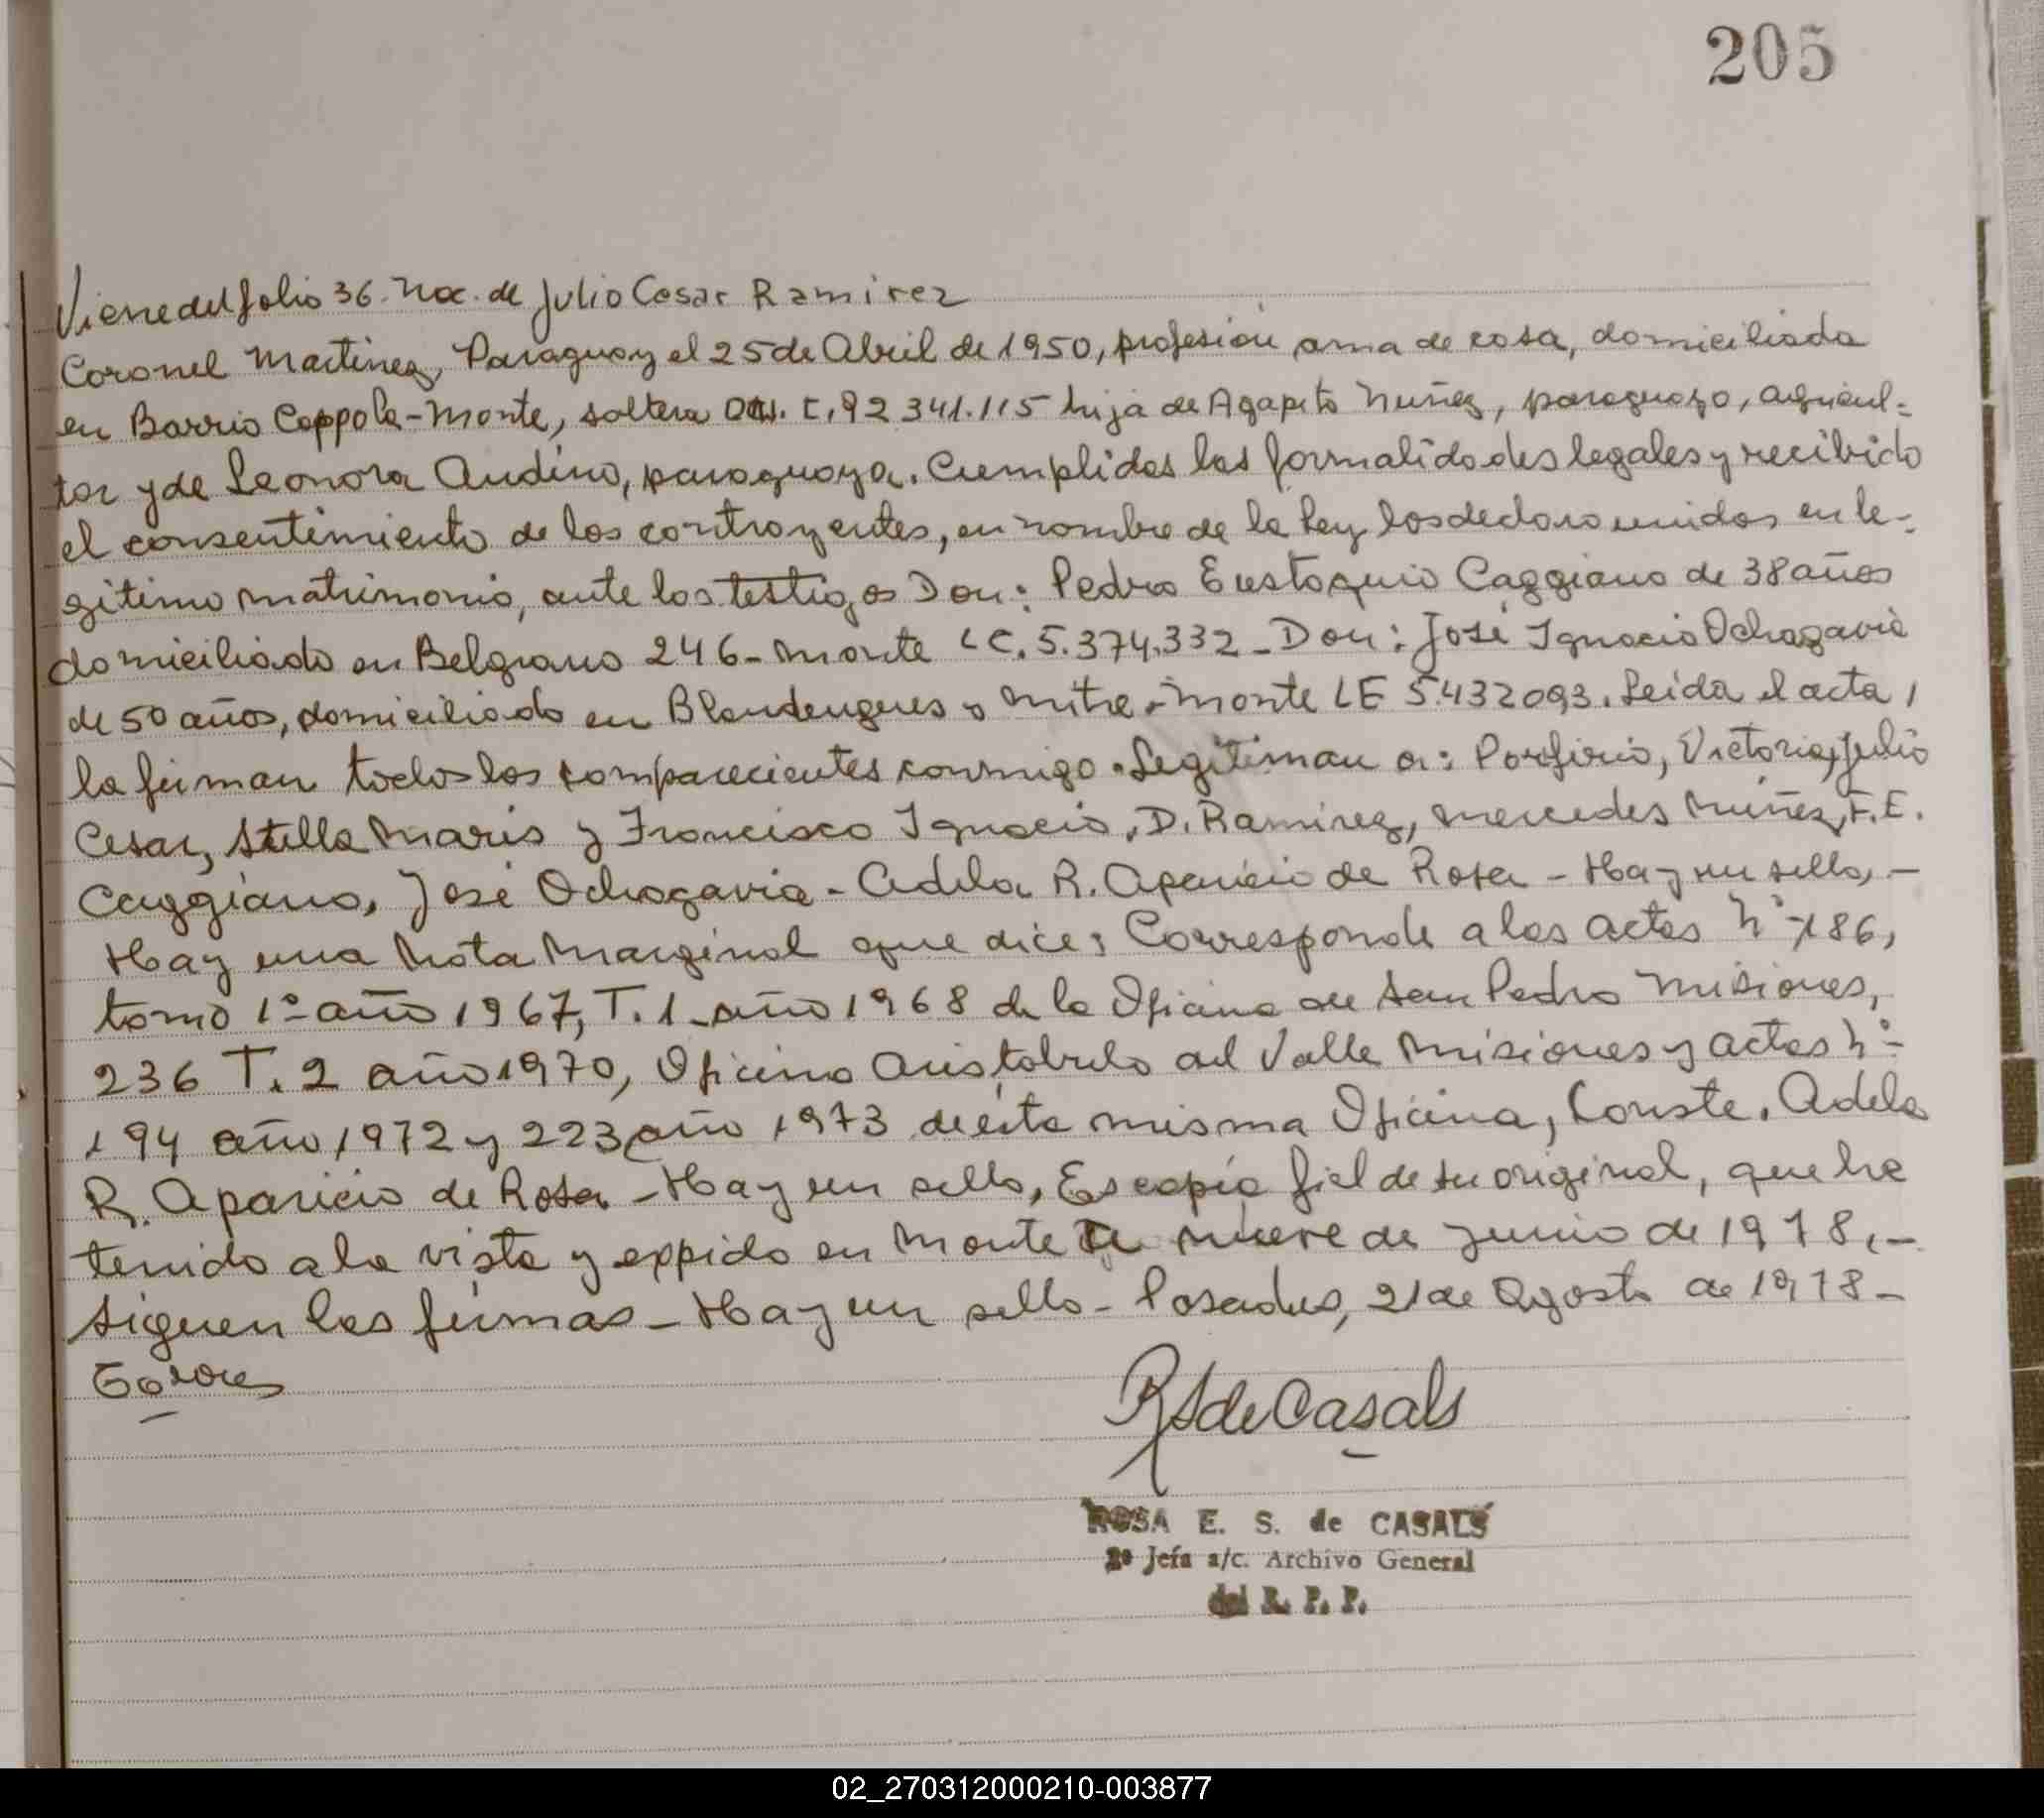 205
Viene del folio 36. Nac. de Julio Cesar Ramirez
Coronel Martinez, Paraguay el 25 de Abril de 1950, profesión ama de casa, domiciliada
en Barrio Coppola-Monte, soltera 92 341.115 hija de Agapito Nuñez, paraguayo, agricul-
tor y de Leonora Audino, paraguaya. Cumplidas las formalidades legales y recibido
el consentimiento de los contrayentes, en nombre de la Ley los declaro unidos en le-
gitimo matrimonio, ante los testigos Don: Pedro Eustaquio Caggiano de 38 años
domiciliado en Belgrano 246-Monte LC. 5.374.332_Don: José Ignacio Ochagavia
de 50 años, domiciliado en Blandengues y Mitre-Monte LE 5.432093. Leida el acta,
la firman todos los comparecientes conmigo. Legitiman a: Porfirio, Victoria, Julio
Cesar, Stella Maris y Francisco Ignacio. D. Ramirez, Mercedes Nuñez, F.E.
Caggiano, José Ochagavia-Adela R. Aparicio de Rosa-Hay un sello.-
Hay una Nota Marginal que dice: Corresponde a las actas N° 186,
tomo 1° año 1967, T. 1 año 1968 de la Oficina de San Pedro Misiones,
236 T. 2 año 1970, Oficina Aristobulo del Valle Misiones y actas N°
194 año 1972 y 223 año 1973 de ésta misma Oficina, Conste. Adela
R. Aparicio de Rosa-Hay un sello, Es copia fiel de su original, que he
tenido a la vista y expido en Monte a nueve de junio de 1978.-
Siguen las firmas-Hay un sello-Posadas, 21 de Agosto de 1978-
RS de Casals
ROSA E. S. de CASALS
2ª Jefa a/c. Archivo General
del R. P. P.
02_270312000210-003877